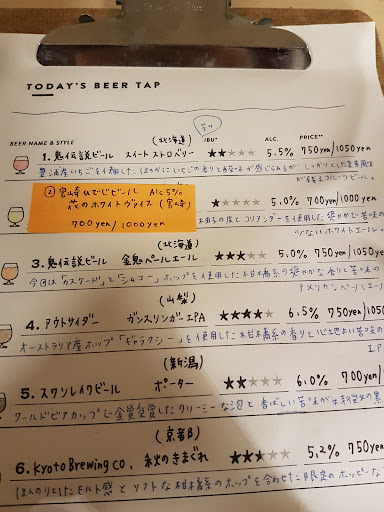 TODAY'S BEER TAP
BEER NAME & STYLE IBU* ALC. PRICE**
(北海道)
1. 鬼伝説ビール スイートストロベリー ★★☆☆☆ 5.5% 750yen/1050yen
豊浦産いちごを使用した
② 宮崎ひでじビール Alc5%
花のホワイトヴァイス (宮崎)
700yen/1000yen
5.0% 700yen/1000yen
の皮とコリアンダーを使用した爽やかで苦味の
少ないホワイトエール。
(北海道)
3. 鬼伝説ビール 金鬼ペールエール ★★★☆☆ 5.0% 750yen/1050yen
今回は「カスケード」と「シムコー」ホップを使用した柑橘系の爽やかな香りと苦味の
アメリカンペールエール
(山梨)
4. アウトサイダー ガンスリンガーIPA ★★★★☆ 6.5% 750yen/10
オーストラリア産ホップ「ギャラクシー」を使用した柑橘系の香りと心地よい苦味の
IPA
(新潟)
5. スワンレイクビール ポーター ★★☆☆☆ 6.0% 700yen/
ワールドビアカップで金賞受賞したクリーミーな泡と香ばしい苦味が
(京都)
6. Kyoto Brewing Co. 秋のきまぐれ ★★★☆☆ 5.2% 750yen
ほんのりとしたモルト感とソフトな柑橘系のホップを合わせた限定のホッピーな